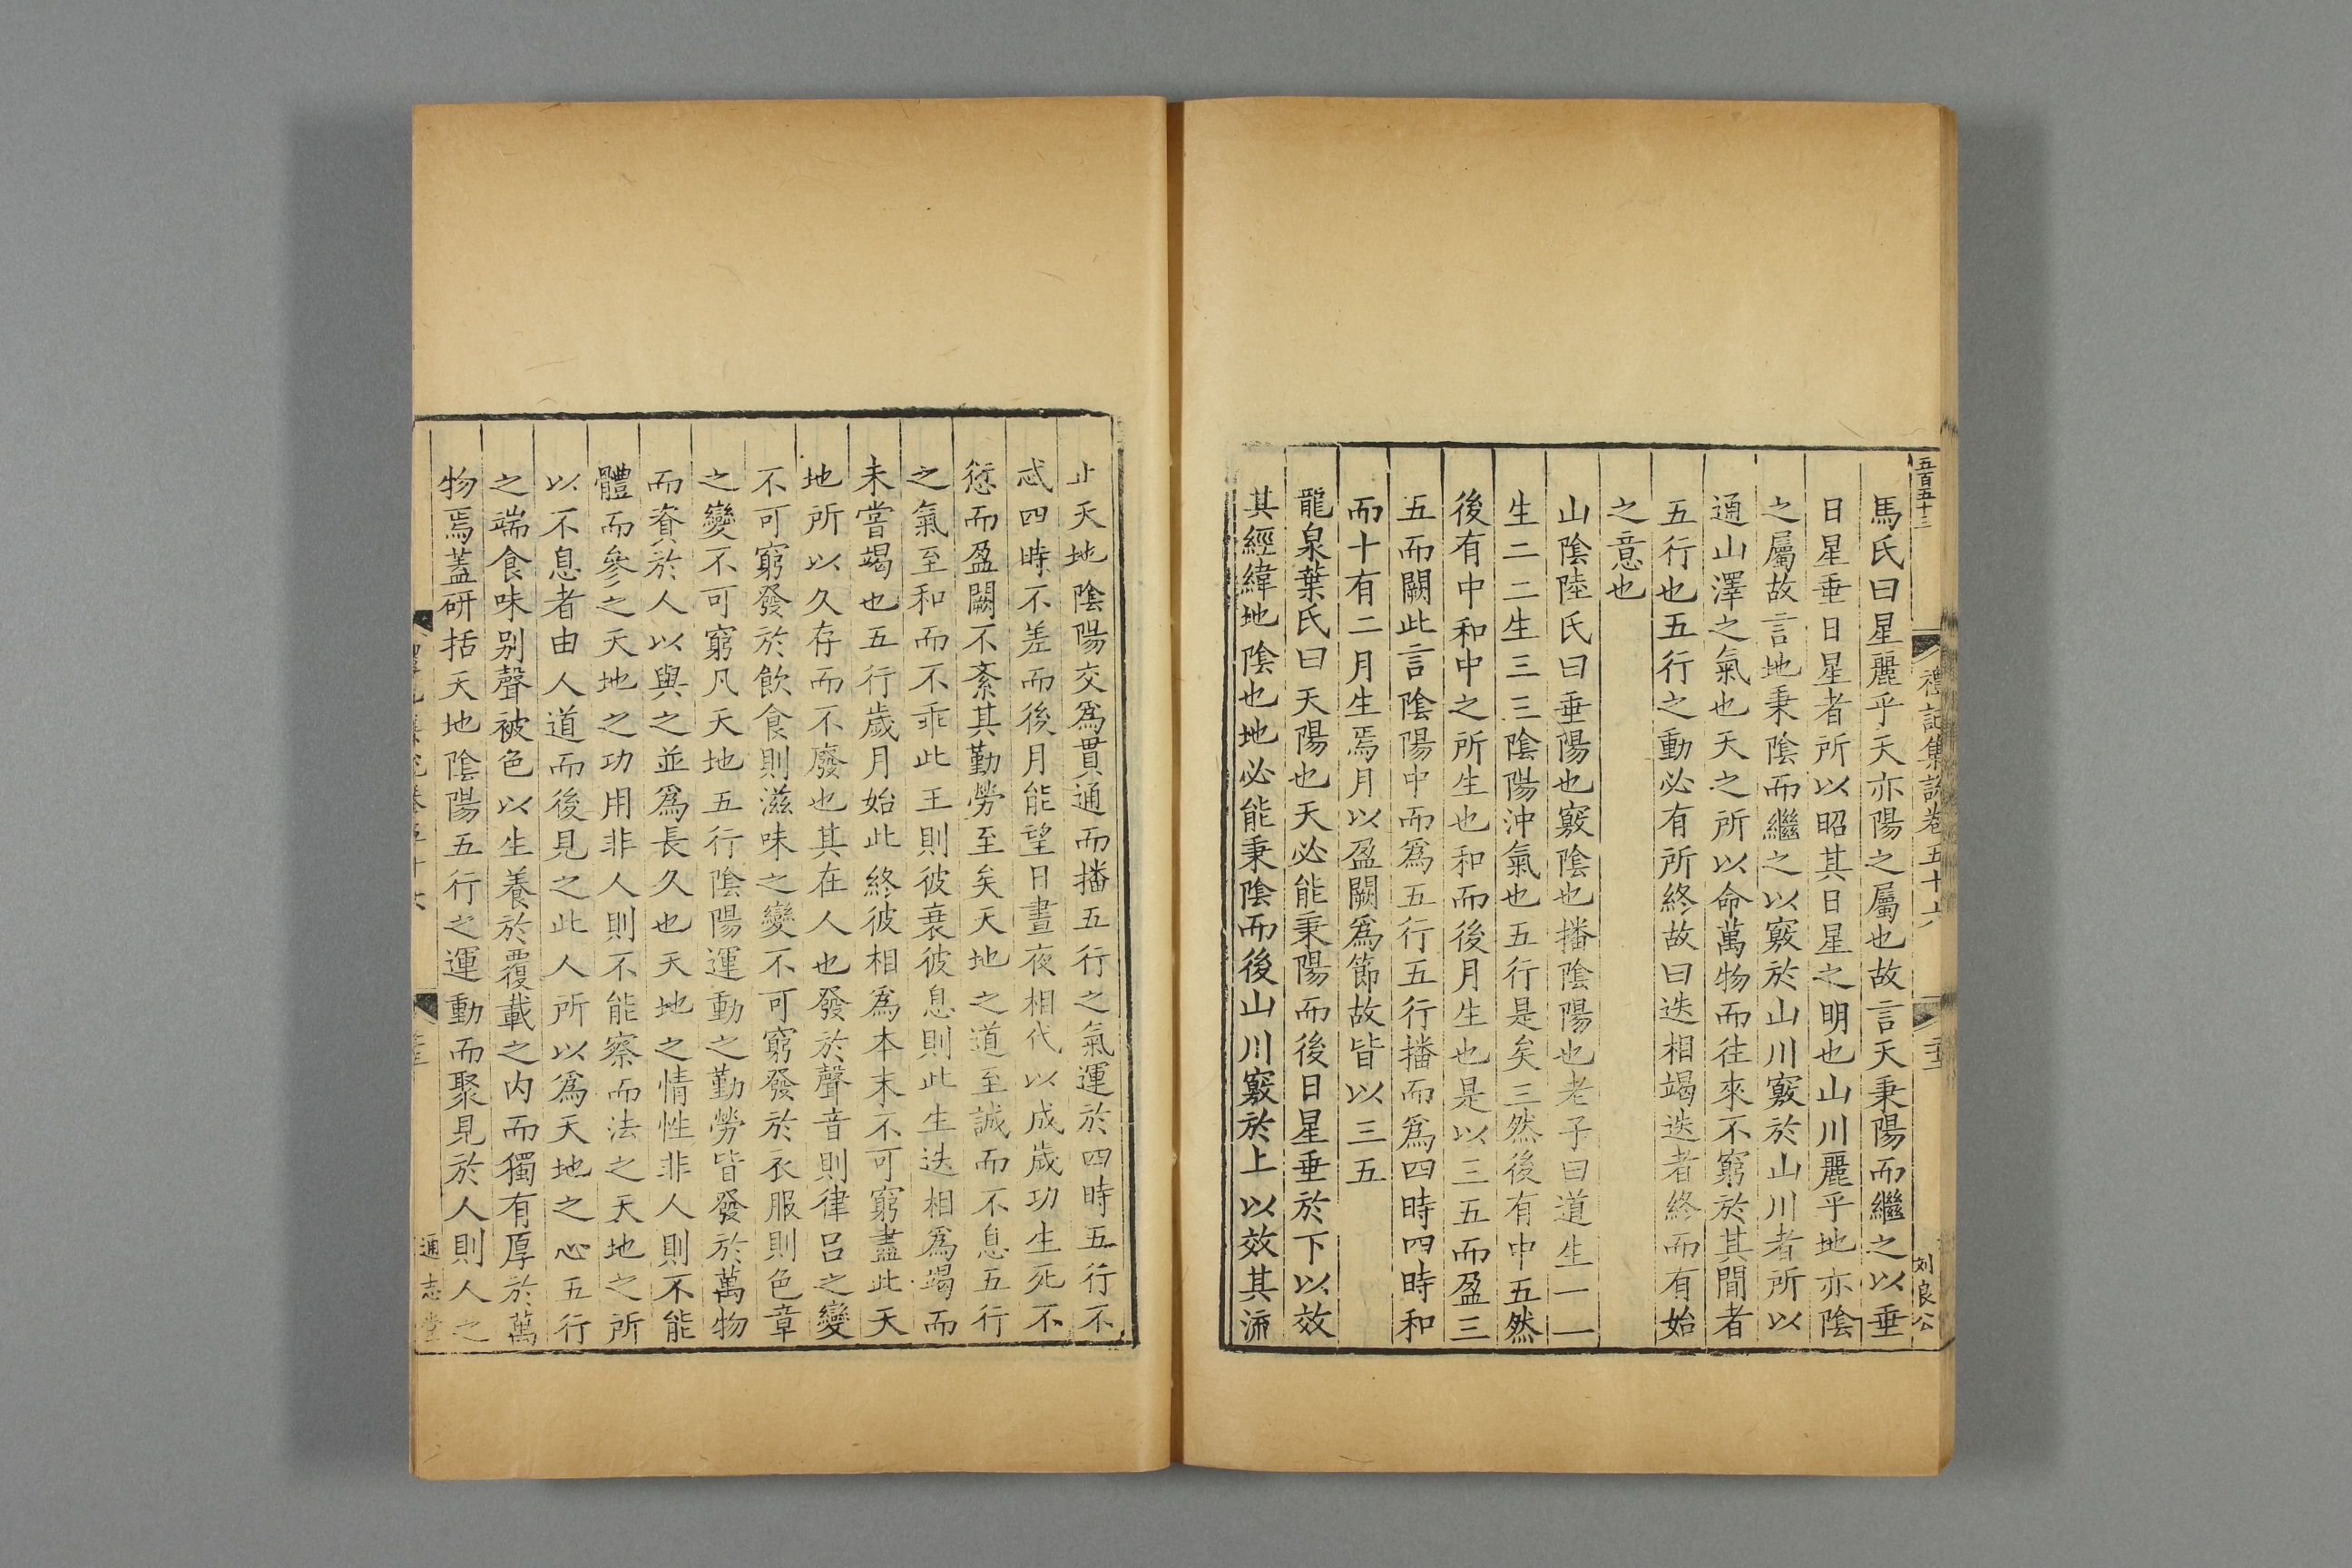 五百五十三
禮記集說卷五十六
刘良公
馬氏曰星麗乎天亦陽之屬也故言天秉陽而繼之以垂
日星垂日星者所以昭其日星之明也山川麗乎地亦陰
之屬故言地秉陰而繼之以竅於山川竅於山川者所以
通山澤之氣也天之所以命萬物而往來不窮於其間者
五行也五行之動必有所終故曰迭相竭迭者終而有始
之意也
山陰陸氏曰垂陽也竅陰也播陰陽也老子曰道生一一
生二二生三三陰陽沖氣也五行是矣三然後有中五然
後有中和中之所生也和而後月生也是以三五而盈三
五而闕此言陰陽中而爲五行五行播而爲四時四時和
而十有二月生焉月以盈闕爲節故皆以三五
龍泉葉氏曰天陽也天必能秉陽而後日星垂於下以效
其經緯地陰也地必能秉陰而後山川竅於上以效其流
止天地陰陽交爲貫通而播五行之氣運於四時五行不
忒四時不差而後月能望日晝夜相代以成歲功生死不
愆而盈闕不紊其勤勞至矣天地之道至誠而不息五行
之氣至和而不乖此王則彼衰彼息則此生迭相爲竭而
未嘗竭也五行歲月始此終彼相爲本末不可窮盡此天
地所以久存而不廢也其在人也發於聲音則律呂之變
不可窮發於飲食則滋味之變不可窮發於衣服則色章
之變不可窮凡天地五行陰陽運動之勤勞皆發於萬物
而資於人以與之並爲長久也天地之情性非人則不能
體而參之天地之功用非人則不能察而法之天地之所
以不息者由人道而後見之此人所以爲天地之心五行
之端食味别聲被色以生養於覆載之内而獨有厚於萬
物焉蓋研括天地陰陽五行之運動而聚見於人則人之
通志堂